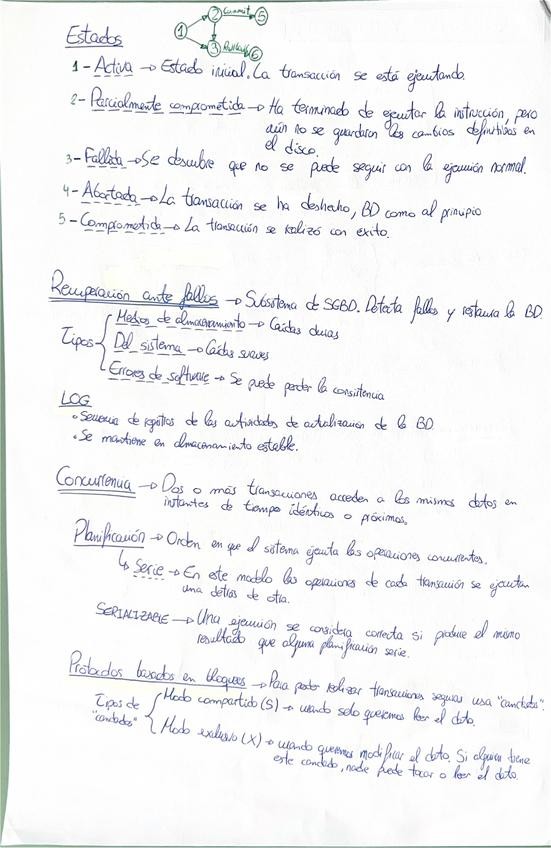 2 Commit 5
1
3 Rollback 6
Estados
1 - Activa → Estado inicial. La transacción se está ejecutando.
2 - Parcialmente comprometida → Ha terminado de ejecutar la instrucción, pero
aún no se guardaron los cambios definitivos en
el disco.
3 - Fallida → Se descubre que no se puede seguir con la ejecución normal.
4 - Abortada → La transacción se ha deshecho, BD como al principio
5 - Comprometida → La transacción se realizó con éxito.
Recuperación ante fallos → Subsistema de SGBD. Detecta fallos y restaura la BD.
Tipos
Medios de almacenamiento → Caídas duras
Del sistema → Caídas suaves
Errores de software → Se puede perder la consistencia
LOG
• Secuencia de registros de las actividades de actualización de la BD
• Se mantiene en almacenamiento estable.
Concurrencia → Dos o más transacciones acceden a los mismos datos en
instantes de tiempo idénticos o próximos.
Planificación → Orden en que el sistema ejecuta las operaciones concurrentes.
↳ Serie → En este modelo las operaciones de cada transacción se ejecutan
una detrás de otra.
SERIALIZABLE → Una ejecución se considera correcta si produce el mismo
resultado que alguna planificación serie.
Protocolos basados en bloqueos → Para poder realizar transacciones seguras usa "candados".
Tipos de "candados"
Modo compartido (S) → cuando solo queremos leer el dato.
Modo exclusivo (X) → cuando queremos modificar el dato. Si alguien tiene
este candado, nadie puede tocar o leer el dato.